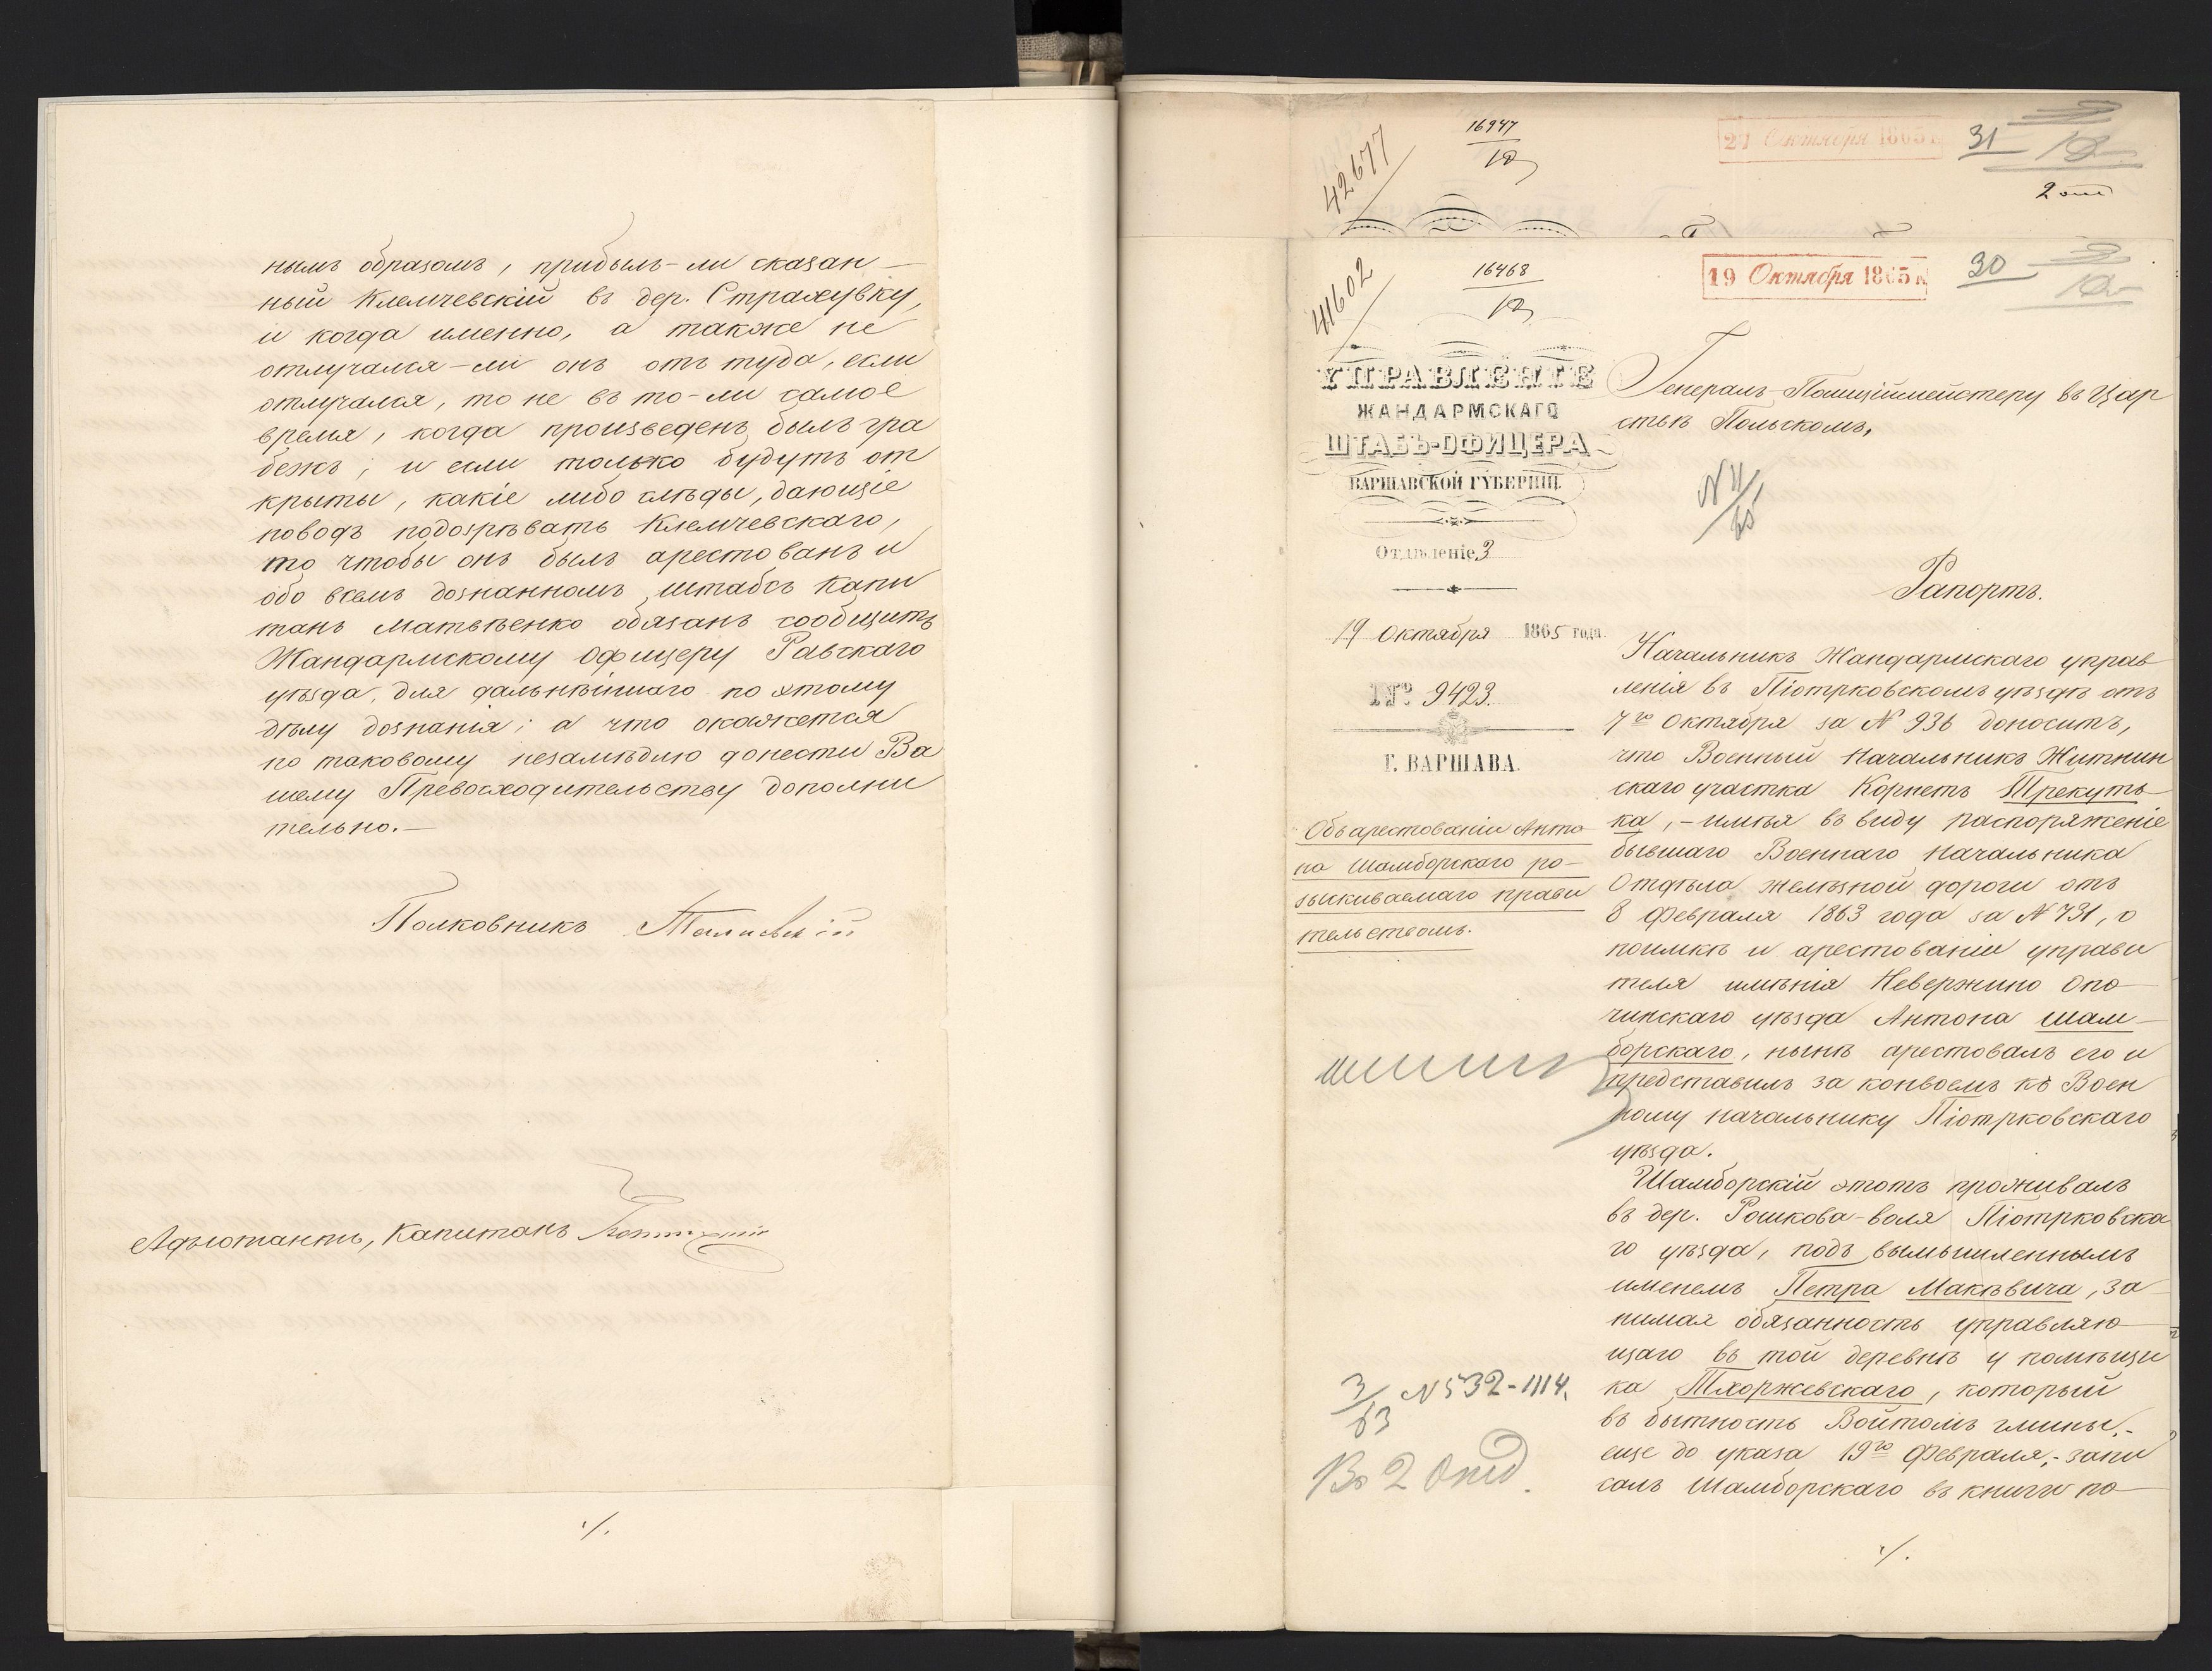 нымъ образомъ, прибылъ-ли сказан-
ный Клемчевскій въ дер. Страхувку,
и когда именно, а также не
отлучался-ли онъ отъ туда, если
отлучался, то не въ то-ли самое
время, когда произведенъ былъ гра
бежъ; и если только будутъ от
крыты, какіе либо слѣды, дающіе
поводъ подозрѣвать Клемчевскаго,
то чтобы онъ былъ арестованъ и
обо всемъ дознанномъ штабсъ капи
танъ Матвѣенко обязанъ сообщить
Жандармскому Офицеру Равскаго
уѣзда, для дальнѣйшаго по этому
дѣлу дознанія; а что окажется
по таковому незамѣдлю донести Ва
шему Превосходительству дополни
тельно.—
Полковникъ
Адъютантъ, Капитанъ
./.
42677
16947
12
21 Октября 1865 г.
31
2 отд
41602
16468
12
19 Октября 1865 г.
30
УПРАВЛЕНІЕ
ЖАНДАРМСКАГО
ШТАБЪ-ОФИЦЕРА
ВАРШАВСКОЙ ГУБЕРНІИ.
Отдѣленіе 3
19 Октября 1865 года.
№ 9423.
Г. ВАРШАВА.
Объ арестованіи Анто
на Шамборскаго ро-
зыскиваемаго прави
тельствомъ.
3/63 N 532-1114.
Въ 2 Отд.
Генералъ-Полиціймейстеру въ Цар
ствѣ Польскомъ,
Рапортъ.
Начальникъ Жандармскаго управ
ленія въ Піотрковскомъ уѣздѣ отъ
7го Октября за № 936 доноситъ,
что Военный Начальникъ Житнин
скаго участка Корнетъ Трекуть-
ка,- имѣя въ виду распоряженіе
бывшаго Военнаго Начальника
Отдѣла желѣзной дороги отъ
8 Февраля 1863 года за № 731, о
поимкѣ и арестованіи управи
теля имѣнія Невержино Опо-
чинскаго уѣзда Антона Шам-
борскаго, нынѣ арестовалъ его и
представилъ за конвоемъ къ Воен
ному начальнику Піотрковскаго
уѣзда.
Шамборскій этотъ проживалъ
въ дер. Рошкова-воля Піотрковска
го уѣзда, подъ вымышленнымъ
именемъ Петра Макѣвича, за-
нимая обязанность управляю-
щаго въ той деревнѣ у помѣщи
ка Тхоржевскаго, который
въ бытность Войтомъ гмины,-
еще до указа 19го Февраля,- запи
салъ Шамборскаго въ книги по-
./.